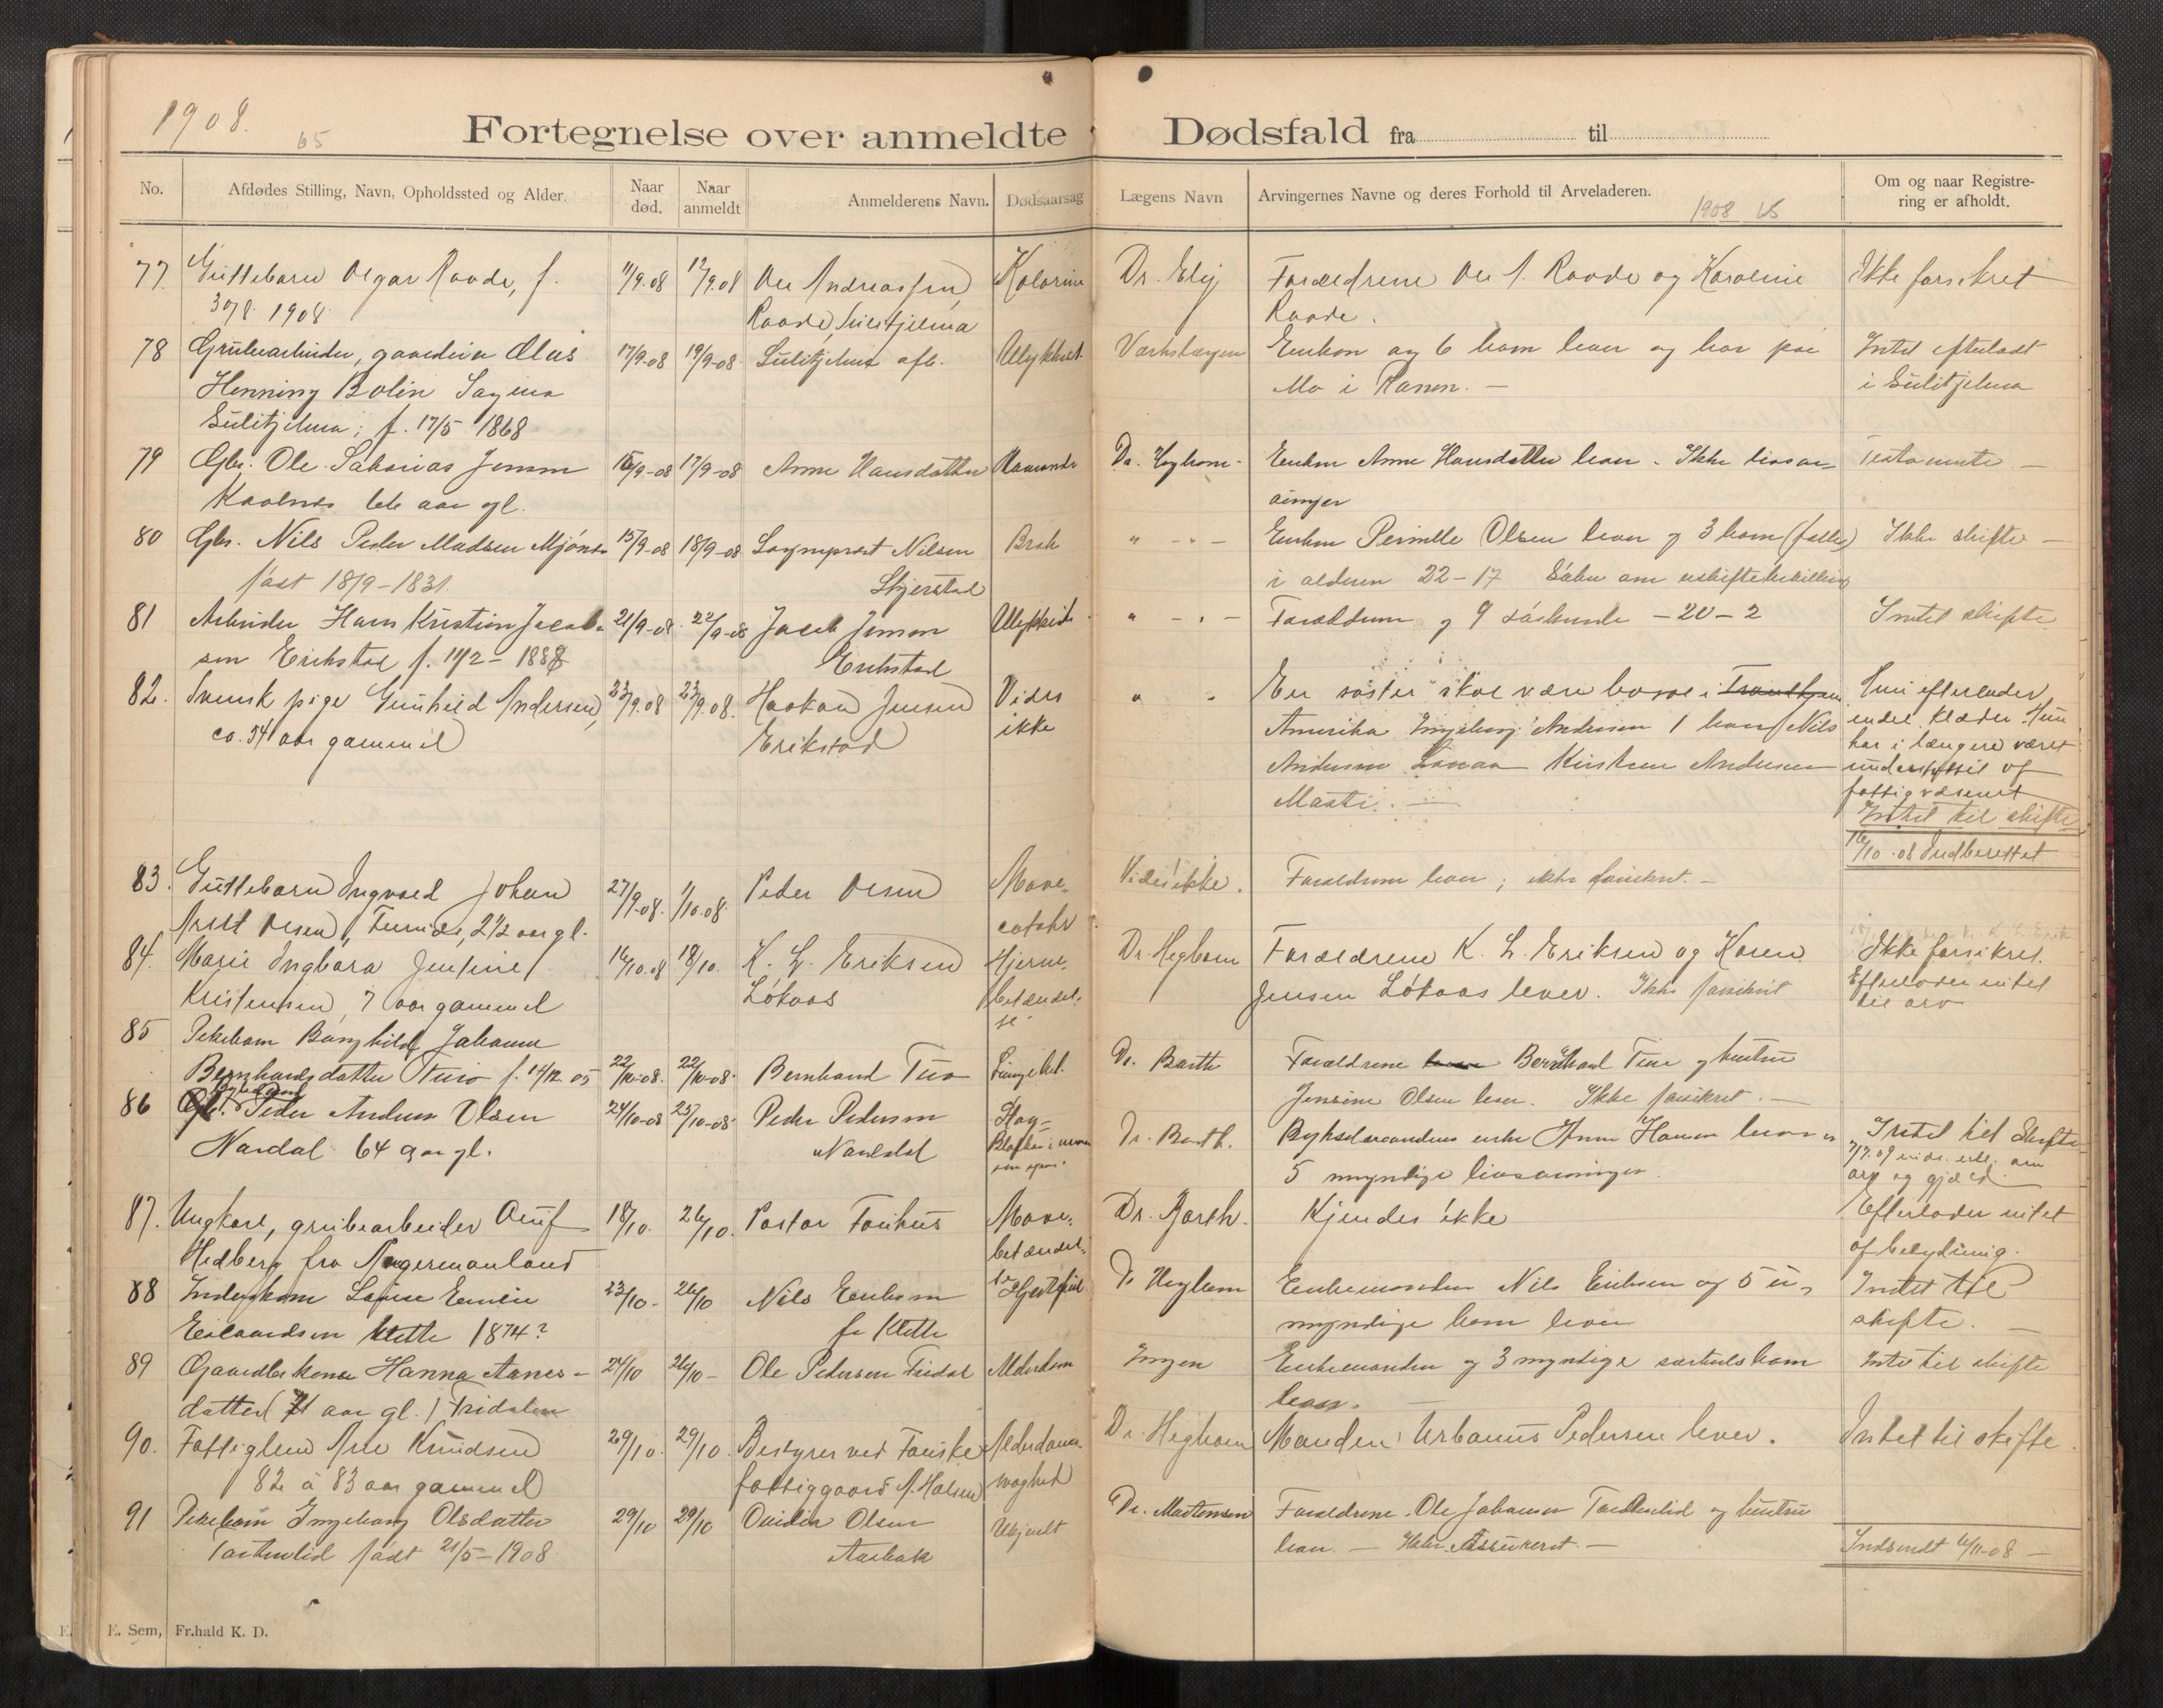 1908.
65
Fortegnelse over anmeldte Dødsfald fra til
No. Afdødes Stilling, Navn, Opholdssted og Alder. Naar død. Naar anmeldt Anmelderens Navn. Dødsaarsag Lægens Navn Arvingernes Navne og deres Forhold til Arveladeren. Om og naar Registrering er afholdt.
1908 65
77 Guttebarn Olgar Raade, f. 11/9.08 12/9.08 Ole Andreassen Kolerine Dr. Elij Forældrene Ole A. Raade og Karoline Ikke forsikret
30/8 1908 Raade, Sulitjelma Raade.
78 Grubearbeider, Olaus 17/9-08 19/9-08 Sulitjelma Ulykkest. Værkslægen Enken og 6 barn lever og bor paa Intet efterladt
Henning Bolin Sagmo Mo i Ranen. — i Sulitjelma
Sulitjelma; f. 17/5 1868
79 Gbr. Ole Sakarias Jensen 16/9-08 17/9-08 Anne Hansdatter Dr. Hegbom Enken Anne Hansdatter lever. Ikke livsar- Testamente —
66 aar gl. vinger
80 Gbr. Nils Peder Madsen Mjønes 15/9-08 18/9-08 Sogneprest Nilsen Brok " - " - Enken Pernille Olsen lever og 3 barn (fælles) Ikke skifte —
født 18/9-1831. Skjerstad i alderen 22-17 Søker om uskiftebevilling
81 Arbeider Hans Kristian Jacob- 21/9-08 22/9-08 Jacob Jensen " - " - Forældrene og 9 søskende - 20-2 Intet skifte
sen Erikstad f. 11/2-1888 Erikstad
82. Svensk pige Gunhild Andersen, 23/9.08 23/9.08. Haakon Jensen Vides " " En søster skal være bosat i Trondhjem Hun efterlader
ca. 34 aar gammel Erikstad ikke Amerika Ingeborg Andersen 1 barn Nils endel klæder. Hun
Andersen Kristian Andersen har i længere været
Masti. — understøttet af
fattigvæsenet
Intet til skifte
16/10.08 Indberettet
83. Guttebarn Ingvald Johan 27/9-08. 1/10.08. Peder Olsen Mave- Vides ikke. Forældrene lever; ikke forsikret. —
Arett Olsen, 2 1/2 aar gl. catahr
84. Marie Ingbora Jensine 16/10.08 18/10. K. L. Eriksen Hjerne- Dr. Hegbom Forældrene K. L. Eriksen og Karen Ikke forsikret.
Kristensen, 7 aar gammel Løkaas betændel- Jensen Løkaas lever. Ikke forsikret Efterlader intet
se til arv
85 Pikebarn Borghild Johanne
Bernhardsdatter Tuv f. 14/12 05 22/10-08. 22/10-08. Bernhard Tuv Lungebet. Dr. Barth Forældrene lever Bernhard Tuv og hustru
Jensine Olsen lever. Ikke forsikret. —
86 Gbr. Peder Andreas Olsen 24/10-08 25/10-08 Peder Pedersen Slag- Dr. Barth. enke Anne Hansen lever og Intet til skifte
Nordal 64 aar gl. Nordal 5 myndige livsarvinger arv og gjæld.
87. Ungkarl, grubearbeider Oluf 18/10. 26/10. Pastor Fonhus Mave- Dr. Barth. Kjendes ikke Efterlader intet
Hedberg fra Angermanland betændel- af betydning.
88 Inderstkone Lovise Emelie 23/10- 26/10 Nils Eriksen se Hjertefeil Dr Hegbom Enkemanden Nils Eriksen og 5 u- Intet til
Klette 1874? Klette myndige barn lever skifte. —
89 Gaardbr.kone Hanna Aanes- 24/10 26/10- Ole Pedersen Fridal Alderdom Ingen Enkemanden og 3 myndige særkuldsbarn Intet til skifte
datter 71 aar gl. Fridalen lever.
90. Fattiglem Ane Knudsen 29/10. 29/10. Bestyrer ved Fauske Alderdoms- Dr. Hegbom Manden Urbanus Pedersen lever. Intet til skifte.
82 à 83 aar gammel fattiggaard A. Halsen svaghed
91 Pikebarn Ingeborg Olsdatter 29/10 29/10 Ovidia Olsen Ukjendt Dr. Martensen Forældrene Ole Johansen og hustru
født 21/5-1908 lever. — Assureret — Indsendt 6/11-08 —
E. Sem, Fr.hald K. D.